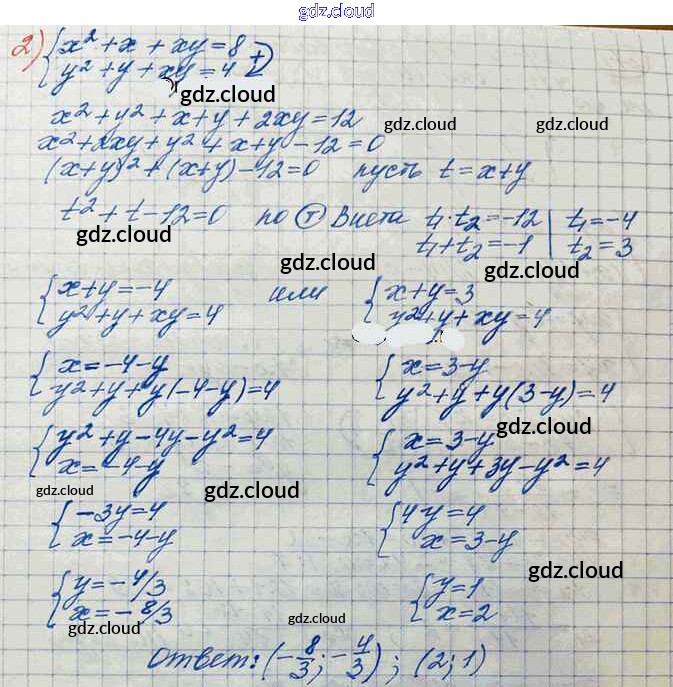 gdz.cloud
2) { x² + x + xy = 8
{ y² + y + xy = 4 +
gdz.cloud
x² + y² + x + y + 2xy = 12
gdz.cloud gdz.cloud
x² + 2xy + y² + x + y - 12 = 0
(x+y)² + (x+y) - 12 = 0 пусть t = x+y
t² + t - 12 = 0 по т Виета t₁·t₂ = -12 | t₁ = -4
t₁ + t₂ = -1 | t₂ = 3
gdz.cloud
gdz.cloud gdz.cloud
{ x+y = -4 или { x+y = 3
{ y² + y + xy = 4 { y² + y + xy = 4
{ x = -4-y { x = 3-y
{ y² + y + y(-4-y) = 4 { y² + y + y(3-y) = 4
gdz.cloud
{ y² + y - 4y - y² = 4 { x = 3-y
{ x = -4-y { y² + y + 3y - y² = 4
gdz.cloud gdz.cloud
{ -3y = 4 { 4y = 4
{ x = -4-y { x = 3-y
gdz.cloud
{ y = -4/3 { y = 1
{ x = -8/3 { x = 2
gdz.cloud gdz.cloud
Ответ: (-8/3; -4/3); (2; 1)